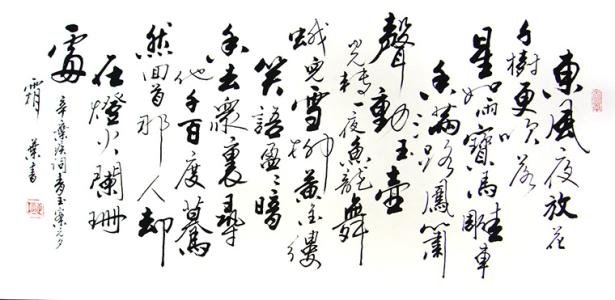 東風夜放花
千樹更吹落
星如雨寶馬雕車
香滿路鳳簫
聲動玉壺
光轉一夜魚龍舞
蛾兒雪柳黃金縷
笑語盈〻暗
香去眾裏尋
他千百度驀
然回首那人却
在燈火闌珊
處
辛棄疾詞青玉案元夕
霜葉書